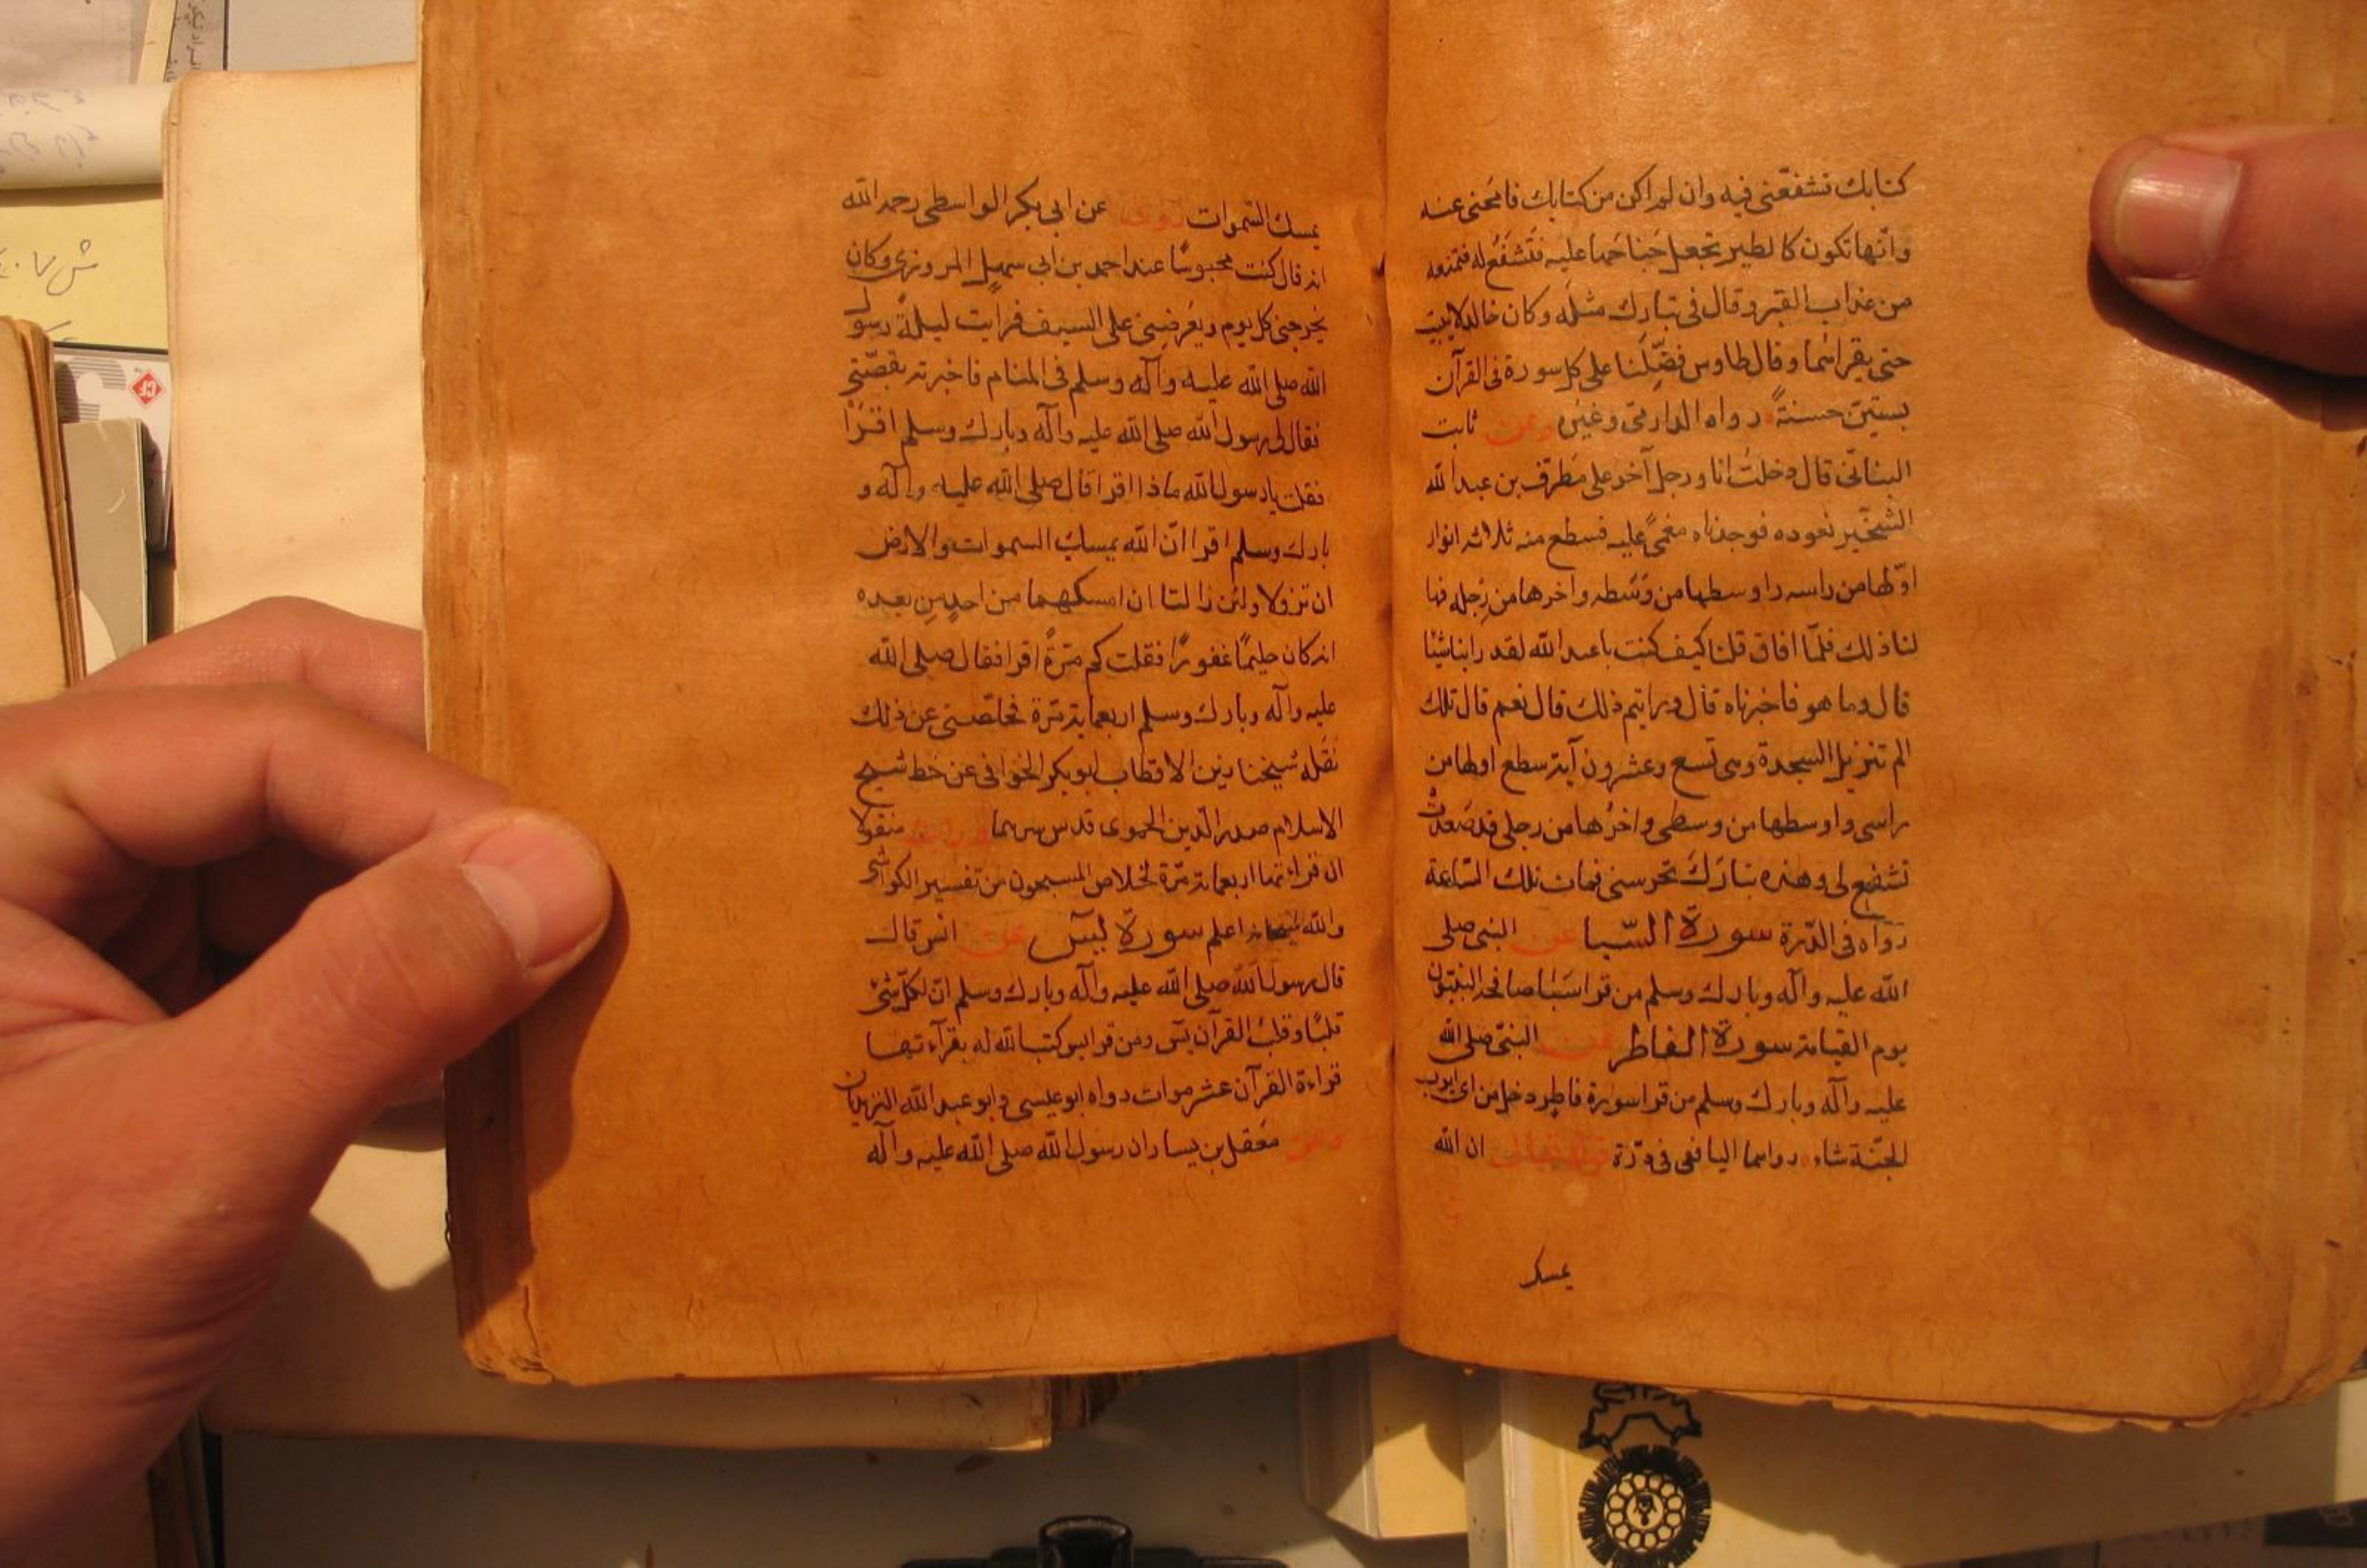 كتابك فشفعني فيه وان لم اكن من كتابك فامحني عنه
وانها تكون كالطير تجعل جناحها عليه فتشفع له فتمنعه
من عذاب القبر وقال في تبارك مثله وكان خالد لا يبيت
حتى يقراهما وقال طاوس فضلنا على كل سورة في القرآن
بستين حسنة رواه الدارمي وغيره وعن ثابت
البناني قال دخلت انا ورجل آخر على مطرف بن عبدالله
الشخير نعوده فوجدناه مغمى عليه فسطع منه ثلاثه انوار
اولها من راسه واوسطها من وسطه واخرها من رجله فها
لنا ذلك فلما افاق قلنا كيف كنت يا عبدالله لقد راينا شيئا
قال وما هو فاخبرناه قال ورايتم ذلك قال نعم قال تلك
الم تنزيل السجدة وهي تسع وعشرون آية سطع اولها من
راسي واوسطها من وسطي واخرها من رجلي قد صعدت
تشفع لي وهذه تبارك تحرسني فمات تلك الساعة
رواه في الدرة سورة السبا عن النبي صلى
الله عليه وآله وبارك وسلم من قرا سبا صافحه النبيون
يوم القيامة سورة الفاطر عن النبي صلى الله
عليه وآله وبارك وسلم من قرا سورة فاطر دخل من اي ابواب
الجنة شاء رواهما اليافعي في درة قوله تعالى ان الله
يمسك
يمسك السموات روى عن ابي بكر الواسطي رحمه الله
انه قال كنت محبوسا عند احمد بن ابي سهيل المروزي وكان
يخرجني كل يوم ويعرضني على السيف فرايت ليلة رسول
الله صلى الله عليه وآله وسلم في المنام فاخبرته بقصتي
فقال لي رسول الله صلى الله عليه وآله وبارك وسلم اقرا
فقلت يا رسول الله ماذا اقرا قال صلى الله عليه وآله و
بارك وسلم اقرا ان الله يمسك السموات والارض
ان تزولا ولئن زالتا ان امسكهما من احد من بعده
انه كان حليما غفورا فقلت كم مرة اقرا فقال صلى الله
عليه وآله وبارك وسلم اربعماية مرة فخلصني عن ذلك
نقله شيخنا زين الاقطاب ابو بكر الخوافي عن خط شيخ
الاسلام صدر الدين الحموي قدس سرهما ورايت منقولا
ان قراءتها اربعماية مرة لخلاص المسجون من تفسير الكواشي
والله سبحانه اعلم سورة يس عن انس قال
قال رسول الله صلى الله عليه وآله وبارك وسلم ان لكل شئ
قلبا وقلب القرآن يس ومن قرا يس كتب الله له بقرآءتها
قراءة القرآن عشر مرات رواه ابو عيسى وابو عبدالله الترمذيان
وعن معقل بن يسار ان رسول الله صلى الله عليه وآله